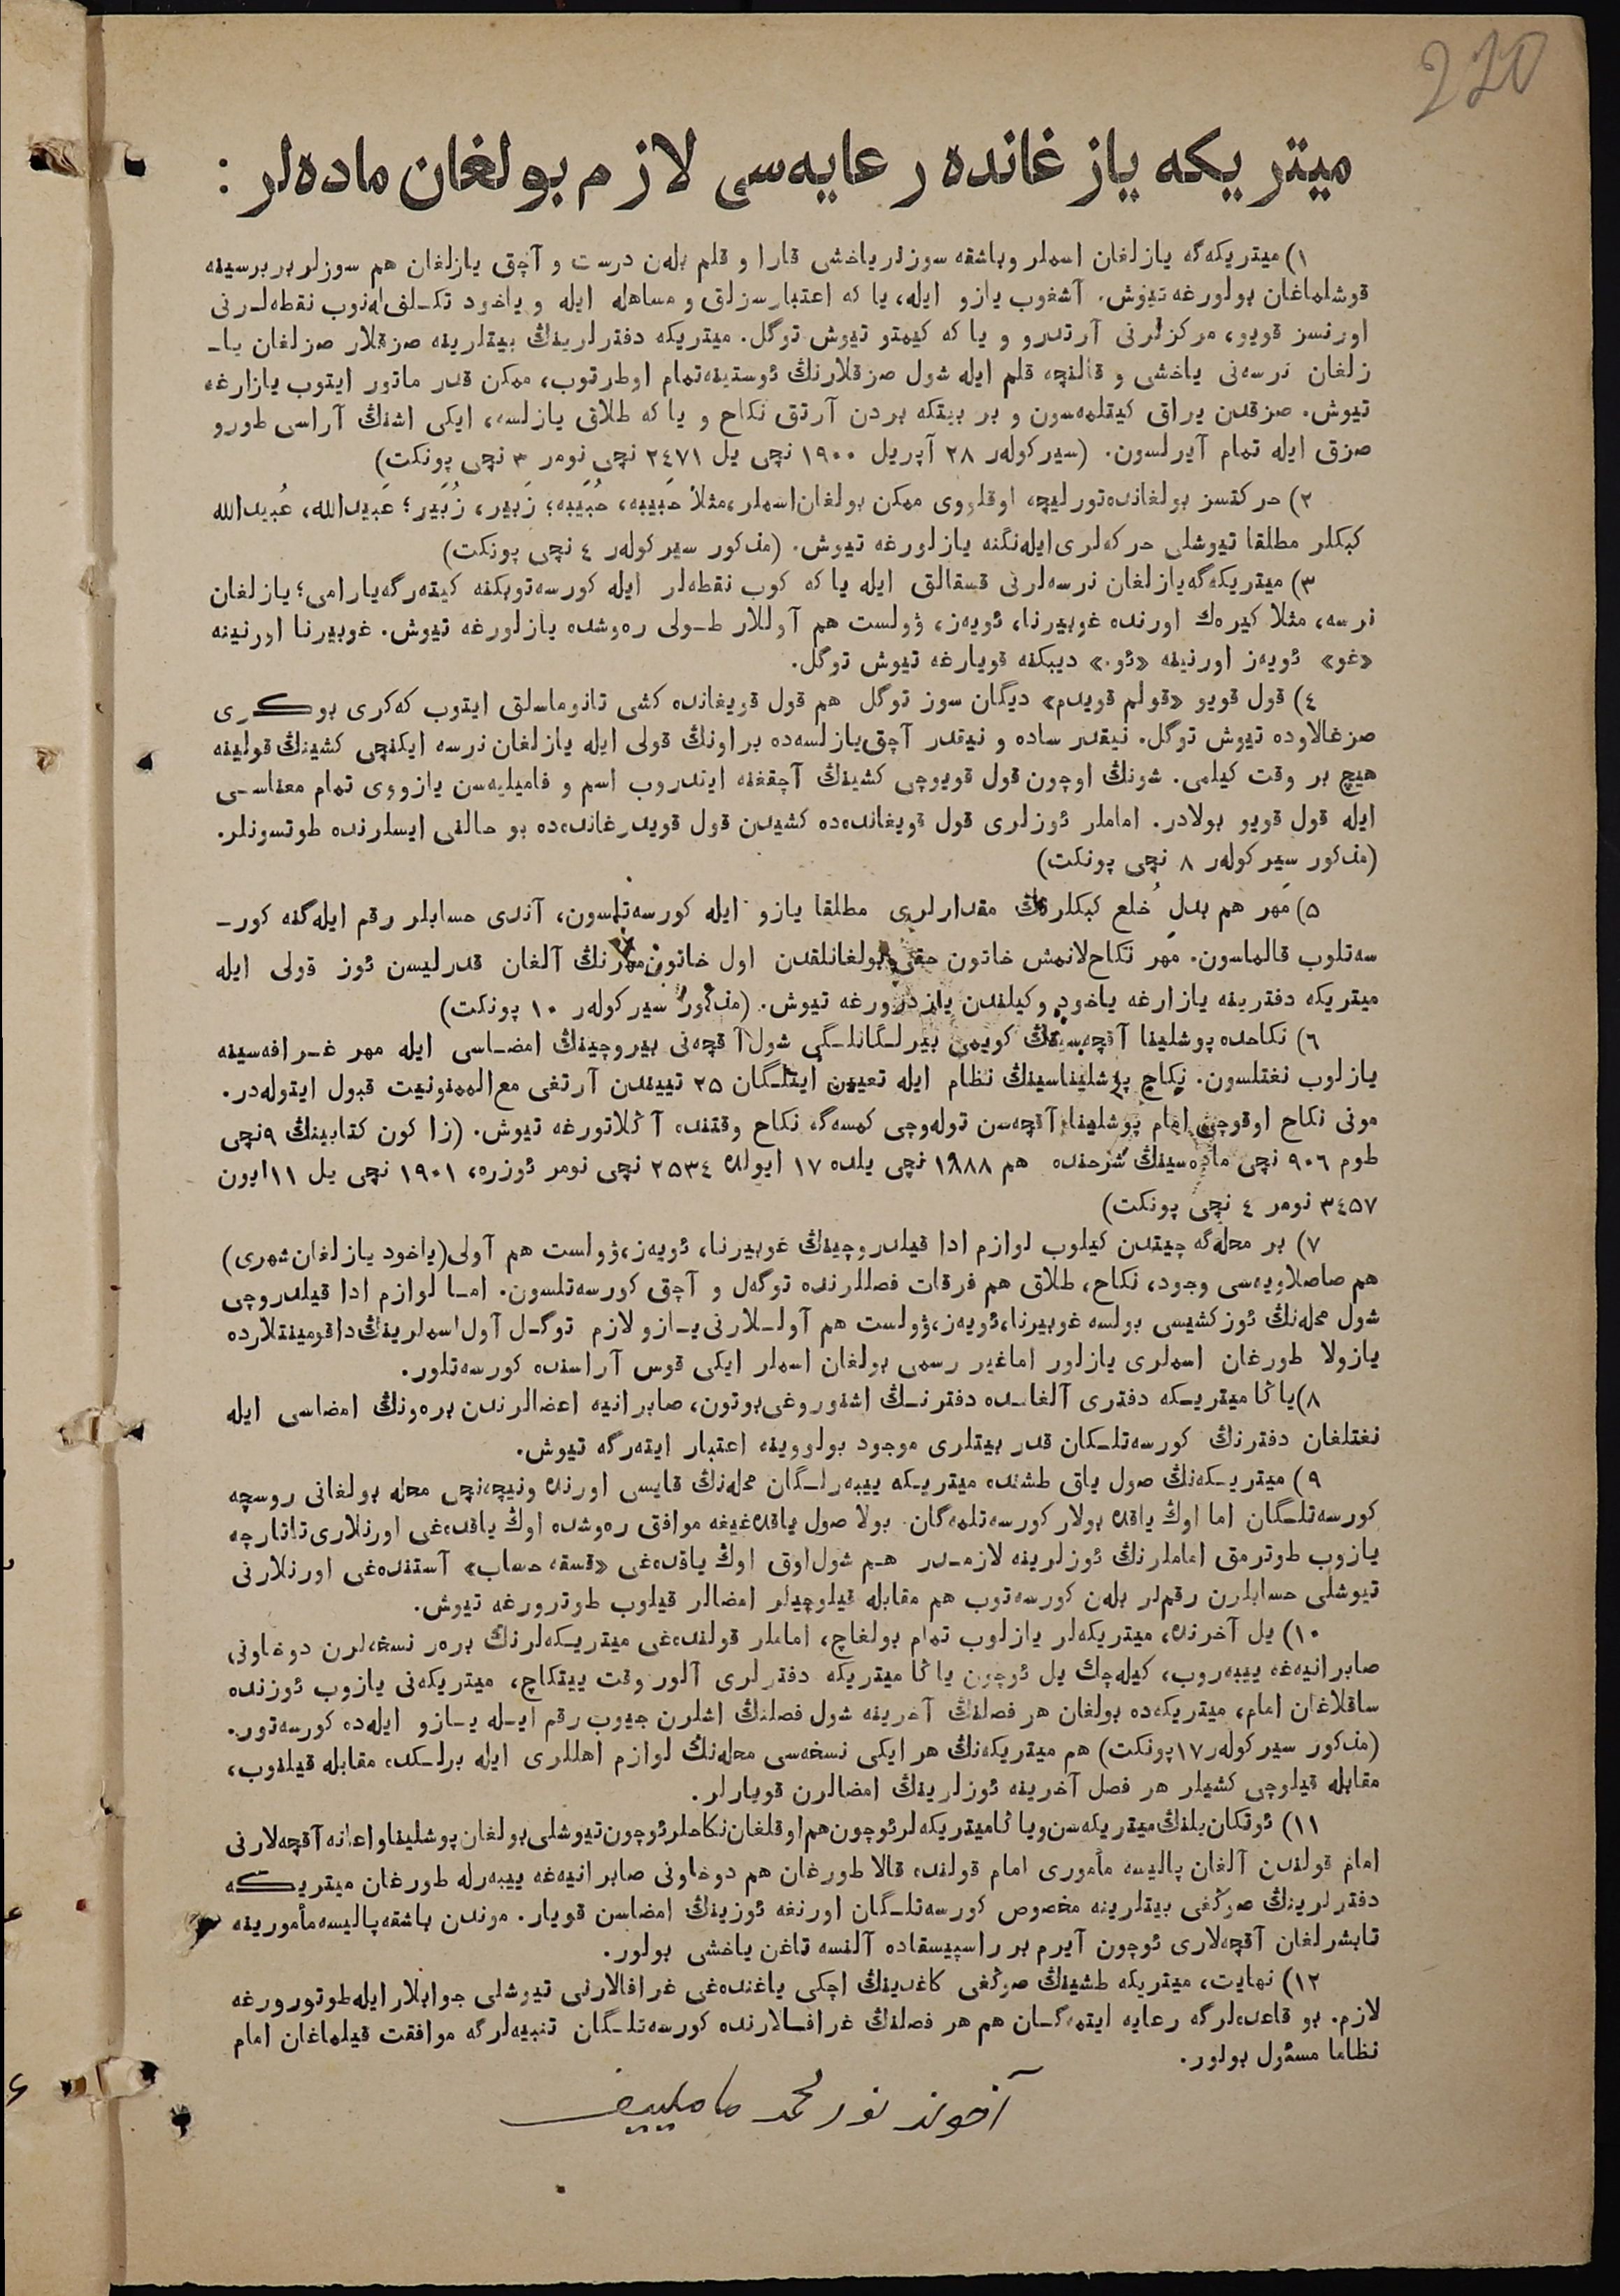 220
میتریکه یازغانده رعایه‌سی لازم بولغان ماده‌لر :
١) میتریکه‌گه یازلغان اسملر وباشقه سوزلر یاخشی قارا و قلم بله‌ن درست و آچق یازلغان هم سوزلر بربرسینه
قوشلماغان بولورغه تیوش. آشغوب یازو ایله، یا که اعتبارسزلق و مساهله ایله و یاخود تکـلف له‌نوب نقطه‌لـرنی
اورنسز قویو، مرکزلرنی آرتدرو و یا که کیمتو تیوش توگل. میتریکه دفترلرینڭ بیتلرینه صزقلار صزلغان یاـ
زلغان نرسه‌نی یاخشی و قالنچه قلم ایله شول صزقلارنڭ ئوستینه‌تمام اوطرتوب، ممکن قدر ماتور ایتوب یازارغه
تیوش. صزقدن یراق کیتلمه‌سون و بر بیتکه بردن آرتق نکاح و یا که طلاق یازلسه، ایکی اشنڭ آراسی طورو
صزق ایله تمام آیرلسون. (سیرکوله‌ر ٢٨ آپریل ١٩٠٠ نچی یل ٢٤٧١ نچی نومر ٣ نچی پونکت)
٢) حرکتسز بولغانده‌تورلیچه اوقلووی ممکن بولغان‌اسملر،مثلاً حَبیبه، حُبَیبه؛ زَبیر، زُبَیر؛ عَبیدالله، عُبیدالله
کبکلر مطلقا تیوشلی حرکه‌لری‌ایله‌نگنه یازلورغه تیوش. (مذکور سیرکوله‌ر ٤ نچی پونکت)
٣) میتریکه‌گه‌یازلغان نرسه‌لرنی قسقالق ایله یا که کوب نقطه‌لر ایله کورسه‌توبکنه کیته‌رگه‌یارامی؛ یازلغان
نرسه، مثلا کیره‌ك اورنده غوبیرنا، ئویه‌ز، وۋلست هم آوللار طـولی ره‌وشده یازلورغه تیوش. غوبیرنا اورنینه
«غو» ئویه‌ز اورنینه «ئو.» دیبکنه قویارغه تیوش توگل.
٤) قول قویو «قولم قویدم» دیگان سوز توگل هم قول قویغانده کشی تانوماسلق ایتوب که‌کری بوکـری
صزغالاوده تیوش توگل. نیقدر ساده و نیقدر آچق‌یازلسه‌ده براونڭ قولی ایله یازلغان نرسه ایکنچی کشینڭ قولینه
هیچ بر وقت کیلمی. شونڭ اوچون قول قویوچی کشینڭ آچقغنه ایتدروب اسم و فامیلیه‌سن یازووی تمام معناسـی
ایله قول قویو بولادر. اماملر ئوزلری قول قویغانده‌ده کشیدن قول قویدرغانده‌ده بو حالنی ایسلرنده طوتسونلر.
(مذکور سیرکوله‌ر ٨ نچی پونکت)
٥) مَهر هم بدلِ خُلع کبکلرنڭ مقدارلری مطلقا یازو ایله کورسه‌تلسون، آندی حسابلر رقم ایله‌گنه کورـ
سه‌تلوب قالماسون. مهر نکاح‌لانمش خاتون حقی بولغانلقدن اول خاتون‌مهرنڭ آلغان قدرلیسن ئوز قولی ایله
میتریکه دفترینه یازارغه یاخود وکیلندن یازدرورغه تیوش. (مذکور سیرکوله‌ر ١٠ پونکت)
٦) نکاحده پوشلینا آقچه‌سینڭ کویمی بیرلـگانلـگی شول آقچه‌نی بیروچینڭ امضـاسی ایله مهر غـرافه‌سینه
یازلوب نغتلسون. نکاح پوشلیناسینڭ نظام ایله تعیین ایتلـگان ٢٥ تییندن آرتغی مع‌الممنونیت قبول ایتوله‌در.
مونی نکاح اوقوچی امام پوشلینا آقچه‌سن توله‌وچی کمسه‌گه نکاح وقتنده آڭلاتورغه تیوش. (زاکون کتابینڭ ٩نچی
طوم ٩٠٦ نچی ماده‌سینڭ شرحنده هم ١٨٨٨ نچی یلده ١٧ ایولده ٢٥٣٤ نچی نومر ئوزره، ١٩٠١ نچی یل ١١ایون
٣٤٥٧ نومر ٤ نچی پونکت)
٧) بر محله‌گه چیتدن کیلوب لوازم ادا قیلدروچینڭ غوبیرنا، ئویه‌ز،وۋلست هم آولی(یاخود یازلغان‌شهری)
هم صاصلاویه‌سی وجود، نکاح، طلاق هم فرقات فصللرنده توگه‌ل و آچق کورسه‌تلسون. امـا لوازم ادا قیلدروچی
شول محله‌نڭ ئوزکشیسی بولسه غوبیرنا،ئویه‌ز،وۋلست هم آولـلارنی یـازو لازم توگـل آول‌اسملرینڭ‌داقومینتلارده
یازولا طورغان اسملری یازلور اماغیر رسمی بولغان اسملر ایکی قوس آراسنده کورسه‌تلور.
٨)یاڭا میتریـکه دفتری آلغانـده دفترنـڭ اشنوروغی‌بوتون، صابرانیه اعضالرندن بره‌ونڭ امضاسی ایله
نغتلغان دفترنڭ کورسه‌تلـکان قدر بیتلری موجود بولووینه اعتبار ایته‌رگه تیوش.
٩) میتریـکه‌نڭ صول یاق طشنده میتریـکه ییبه‌رلـگان محله‌نڭ قایسی اورنده ونیچه‌نچی محله بولغانی روسچه
کورسه‌تلـگان اما اوڭ یاقده بولار کورسه‌تلمه‌گان. بولا صول یاقده‌غیغه موافق ره‌وشده اوڭ یاقده‌غی اورنلاری‌تاتارچه
یازوب طوترمق اماملرنڭ ئوزلرینه لازمـدر هـم شول‌اوق اوڭ یاقده‌غی «قسقه حساب» آستنده‌غی اورنلارنی
تیوشلی حسابلرن رقم‌لر بله‌ن کورسه‌توب هم مقابله قیلوچیلر امضالر قیلوب طوترورغه تیوش.
١٠) یل آخرنده، میتریکه‌لر یازلوب تمام بولغاچ، اماملر قولنده‌غی میتریـکه‌لرنڭ بره‌ر نسخه‌لرن دوخاونی
صابرانیه‌غه ییبه‌روب، کیله‌چك یل ئوچون یاڭا میتریکه دفترلری آلور وقت ییتکاچ، میتریکه‌نی یازوب ئوزنده
ساقلاغان امام، میتریکه‌ده بولغان هر فصلنڭ آخرینه شول فصلنڭ اشلرن جیوب رقم ایـله یـازو ایله‌ده کورسه‌تور.
(مذکور سیرکوله‌ر ١٧پونکت) هم میتریکه‌نڭ هر ایکی نسخه‌سی محله‌نڭ لوازم اهللری ایله برلـکده مقابله قیلنوب،
مقابله قیلوچی کشیلر هر فصل آخرینه ئوزلرینڭ امضالرن قویارلر.
١١) ئوتکان‌یلنڭ‌میتریکه‌سن‌ویاڭامیتریکه‌لرئوچون‌هم‌اوقلغان‌نکاحلرئوچون‌تیوشلی‌بولغان‌پوشلیناواعانه‌آقچه‌لارنی
امام قولندن آلغان پالیسه مأموری امام قولنده قالا طورغان هم دوخاونی صابرانیه‌غه ییبه‌رله طورغان میتریـکه
دفترلرینڭ صوڭغی بیتلرینه مخصوص کورسه‌تلـگان اورنغه ئوزینڭ امضاسن قویار. موندن باشقه‌پالیسه‌مأمورینه
تابشرلغان آقچه‌لاری ئوچون آیرم بر راسپیسقاده آلنسه تاغن یاخشی بولور.
١٢) نهایت، میتریکه طشینڭ صوڭغی کاغدینڭ اچکی یاغنده‌غی غرافالارنی تیوشلی جوابلارایله‌طوتورورغه
لازم. بو قاعده‌لرگه رعایه ایتمه‌گـان هم هر فصلنڭ غرافـالارنده کورسه‌تلـگان تنبیه‌لرگه موافقت قیلماغان امام
نظاما مسئول بولور.
آخوند نورمحمد ماملییف